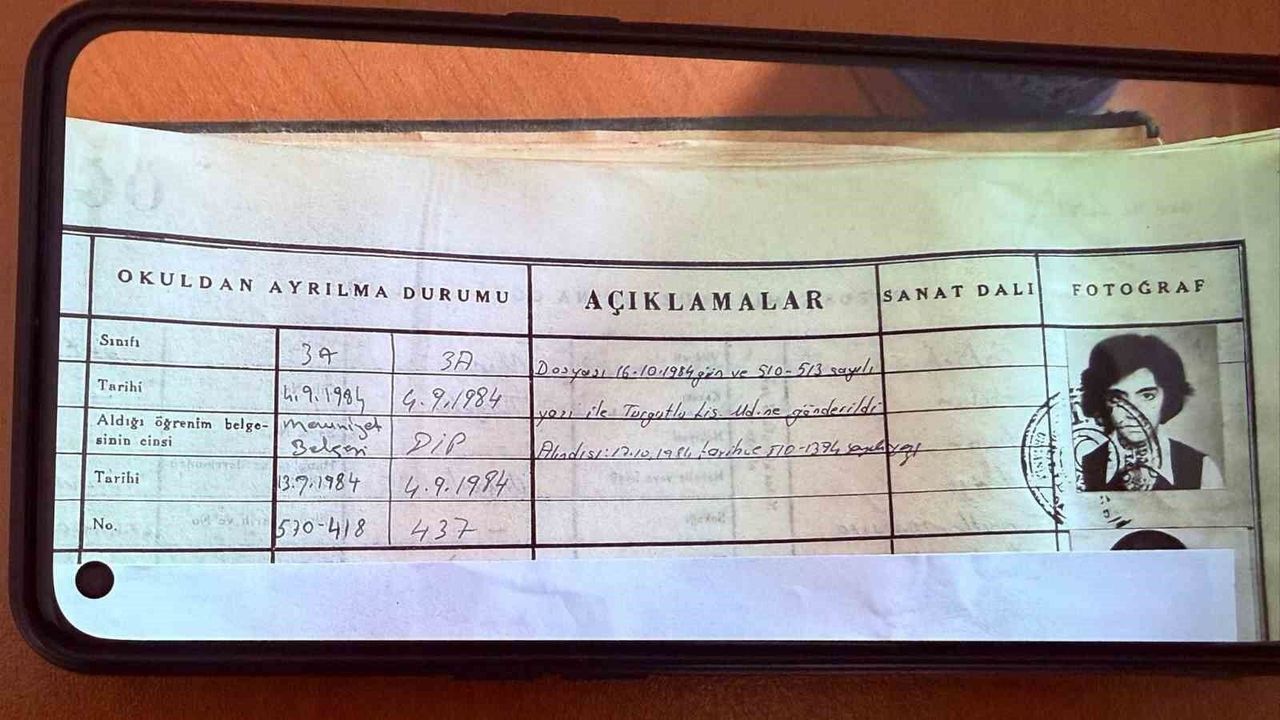 OKULDAN AYRILMA DURUMU AÇIKLAMALAR SANAT DALI FOTOĞRAF
Sınıfı 3A 3A Dosyası 16.10.1984 gün ve 510-513 sayılı
Tarihi 4.9.1984 4.9.1984 yazı ile Turgutlu Lis. Md.ne gönderildi
Aldığı öğrenim belge-
sinin cinsi Mezuniyet Belgesi DİP 1984 tarih ve 510-1374
Tarihi 13.9.1984 4.9.1984
No. 510-418 437